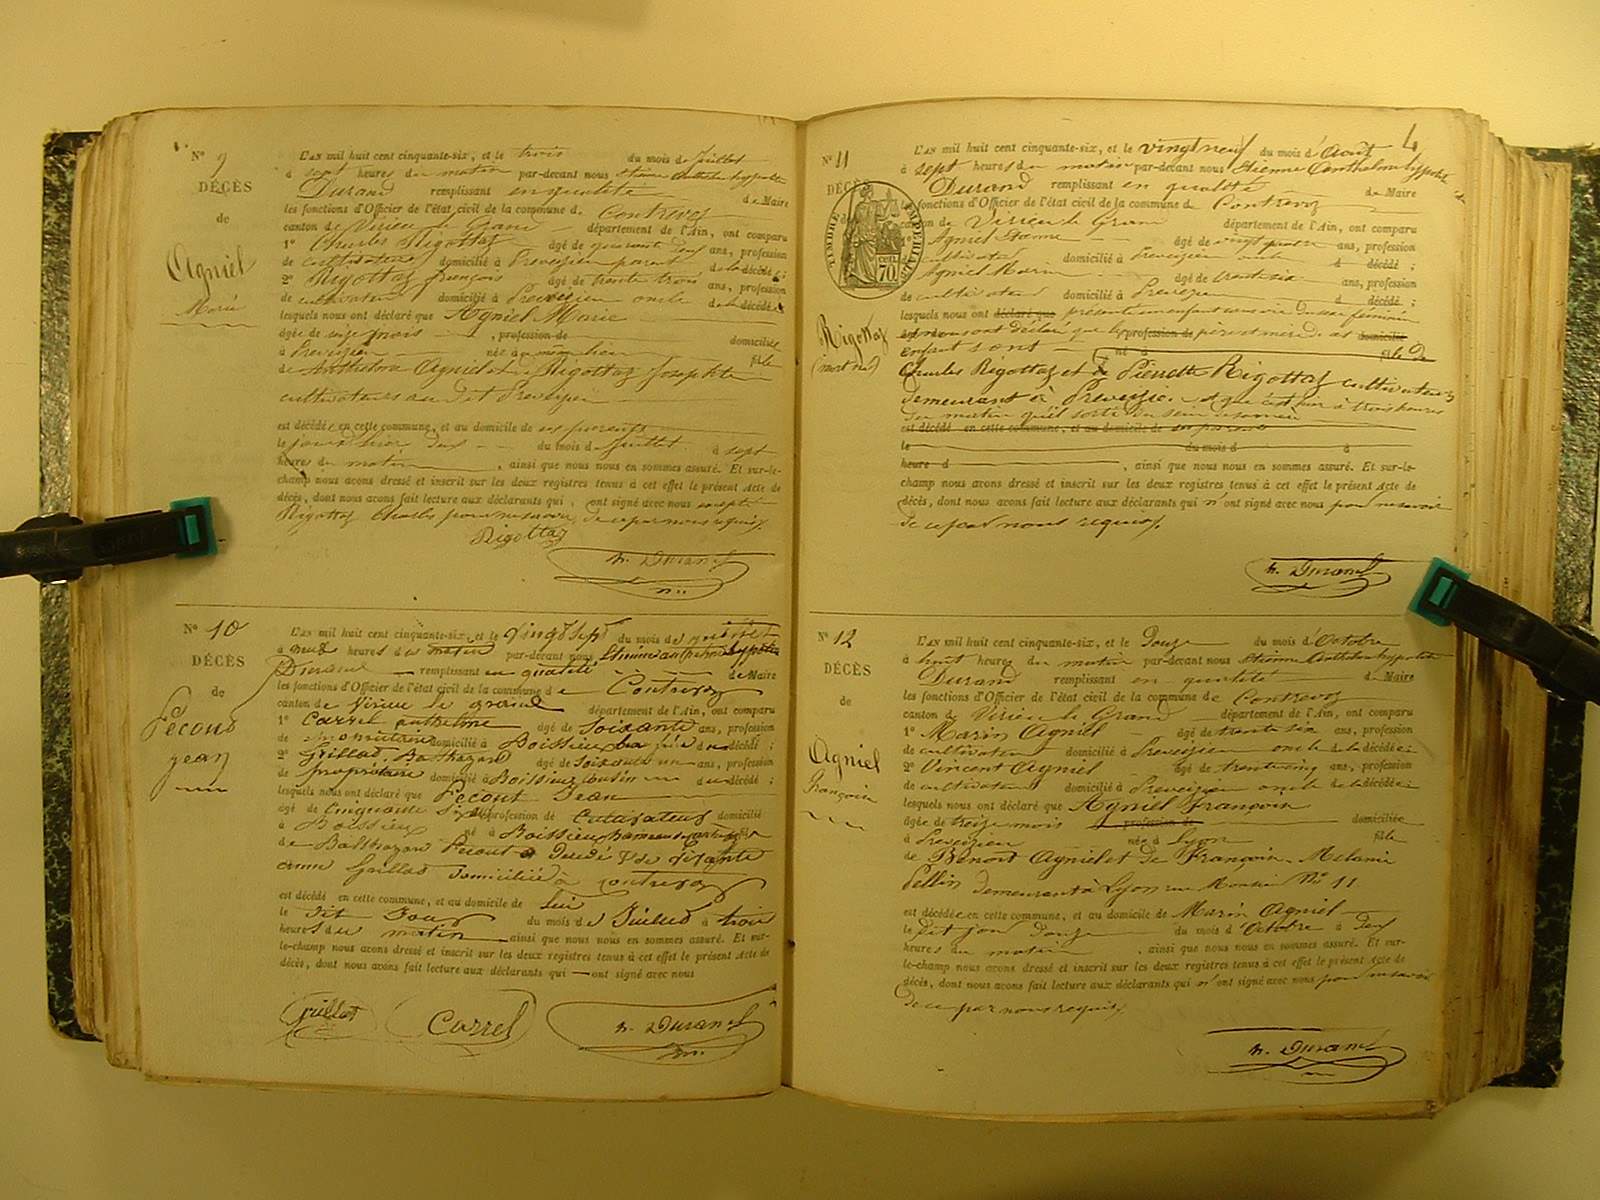 N° 9
DÉCÈS
de
Agniel
Marie
L'AN mil huit cent cinquante-six, et le trois du mois de Juillet
à sept heures du matin par-devant nous Etienne Anthelme hyppolite
Durand remplissant en qualité de Maire
les fonctions d'Officier de l'état civil de la commune de Contrevoz
canton de Virieu le Grand département de l'Ain, ont comparu
1° Charles Rigottaz âgé de quarante deux ans, profession
de cultivateur domicilié à Preveyzieu parent de la décédée ;
2° Rigottaz françois âgé de trente trois ans, profession
de cultivateur domicilié à Preveyzieu oncle de la décédée
lesquels nous ont déclaré que Agniel Marie
âgée de seize mois , profession de domiciliée
à Preveyzieu née à u même lieu fille
de Anthelme Agniel et de Rigottaz Josephte
cultivateurs au dit Preveyzieu
est décédée en cette commune, et au domicile de ses parents
le jour d'hier deux du mois de Juillet à sept
heures du matin , ainsi que nous nous en sommes assuré. Et sur-le-
champ nous avons dressé et inscrit sur les deux registres tenus à cet effet le présent Acte de
décès, dont nous avons fait lecture aux déclarants qui ont signé avec nous excepté
Rigottaz Charles pour ne savoir, de ce par nous requis.
Rigottaz
h. Durand
N° 10
DÉCÈS
de
Pecout
Jean
L'AN mil huit cent cinquante-six, et le vingt sept du mois de Juillet
à neuf heures du matin par-devant nous Etienne anthelme hyppolite
Durand remplissant en qualité de Maire
les fonctions d'Officier de l'état civil de la commune de Contrevoz
canton de Virieu le grand département de l'Ain, ont comparu
1° Carrel anthelme âgé de Soixante ans, profession
de propriétaire domicilié à Boissieu du décédé ;
2° Grillot Balthazard âgé de Soixante un ans, profession
de propriétaire domicilié à Boissieu cousin du décédé ;
lesquels nous ont déclaré que Pecout Jean
âgé de Cinquante six ans profession de Cultivateur domicilié
à Boissieu né à Boissieu hameau de contrevoz fils
de Balthazard Pecout Decédé & de vivante
anne Grillot domiciliée à contrevoz
est décédé en cette commune, et au domicile de lui
le dit Jour du mois de Juillet à trois
heures du matin ainsi que nous nous en sommes assuré. Et sur-
le-champ nous avons dressé et inscrit sur les deux registres tenus à cet effet le présent Acte de
décès, dont nous avons fait lecture aux déclarants qui ont signé avec nous
Grillot
Carrel
h. Durand
4
N° 11
DÉCÈS
TIMBRE IMPÉRIALE
70 cen
Rigottaz
(mort né)
L'AN mil huit cent cinquante-six, et le vingt neuf du mois d'Août
à sept heures du matin par-devant nous Etienne Anthelme hyppolite
Durand remplissant en qualité de Maire
les fonctions d'Officier de l'état civil de la commune de Contrevoz
canton de Virieu le Grand département de l'Ain, ont comparu
1° Agniel Etienne âgé de vingt quatre ans, profession
cultivateur domicilié à Preveyzieu d décédé ;
Agniel Marin âgé de trente six ans, profession
de cultivateur domicilié à Preveyzieu d décédé ;
lesquels nous ont déclaré que présenté un enfant sans vie du sexe féminin
et nous ont déclaré que les profession de père et mère du dit domicilié
enfant sont né à fils de
Charles Rigottaz et de Pierrette Rigottaz cultivateurs
demeurant à Preveyzieu et que c'est hier à trois heures
du matin qu'il est sorti du sein de sa mère
est décédé en cette commune, et au domicile de ses parents
le du mois d à
heure d , ainsi que nous nous en sommes assuré. Et sur-le-
champ nous avons dressé et inscrit sur les deux registres tenus à cet effet le présent Acte de
décès, dont nous avons fait lecture aux déclarants qui n'ont signé avec nous pour ne savoir
de ce par nous requis.
h. Durand
N° 12
DÉCÈS
de
Agniel
Françoise
L'AN mil huit cent cinquante-six, et le Douze du mois d'Octobre
à huit heures du matin par-devant nous Etienne Anthelme hyppolite
Durand remplissant en qualité de Maire
les fonctions d'Officier de l'état civil de la commune de Contrevoz
canton de Virieu le Grand département de l'Ain, ont comparu
1° Marin Agniel âgé de trente six ans, profession
de cultivateur domicilié à Preveyzieu oncle de la décédée ;
2° Vincent Agniel âgé de trente cinq ans, profession
de cultivateur domicilié à Preveyzieu oncle de la décédée ;
lesquels nous ont déclaré que Agniel Françoise
âgée de treize mois profession de domiciliée
à Preveyzieu née à Lyon fille
de Benoit Agniel et de Françoise Melanie
Pellin demeurant à Lyon rue N° 11
est décédée en cette commune, et au domicile de Marin Agniel
le dit jour Douze du mois d'Octobre à deux
heures du matin , ainsi que nous nous en sommes assuré. Et sur-
le-champ nous avons dressé et inscrit sur les deux registres tenus à cet effet le présent Acte de
décès, dont nous avons fait lecture aux déclarants qui n'ont signé avec nous pour ne savoir
de ce par nous requis.
h. Durand